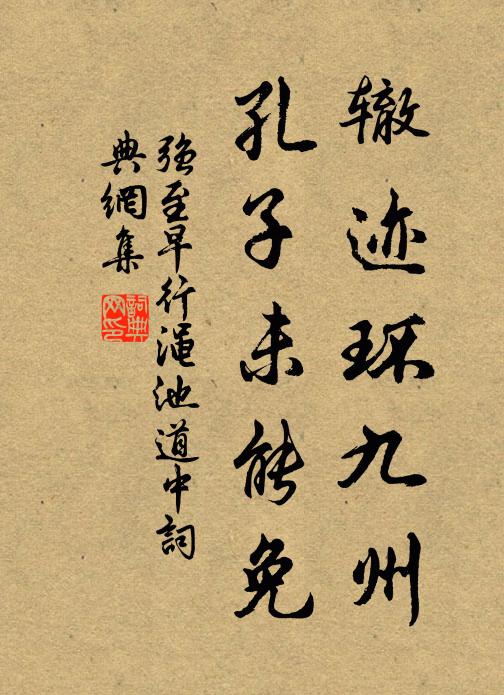 辙迹环九州
孔子未能免
强至早行渑池道中詞
典網集
詞典
网印